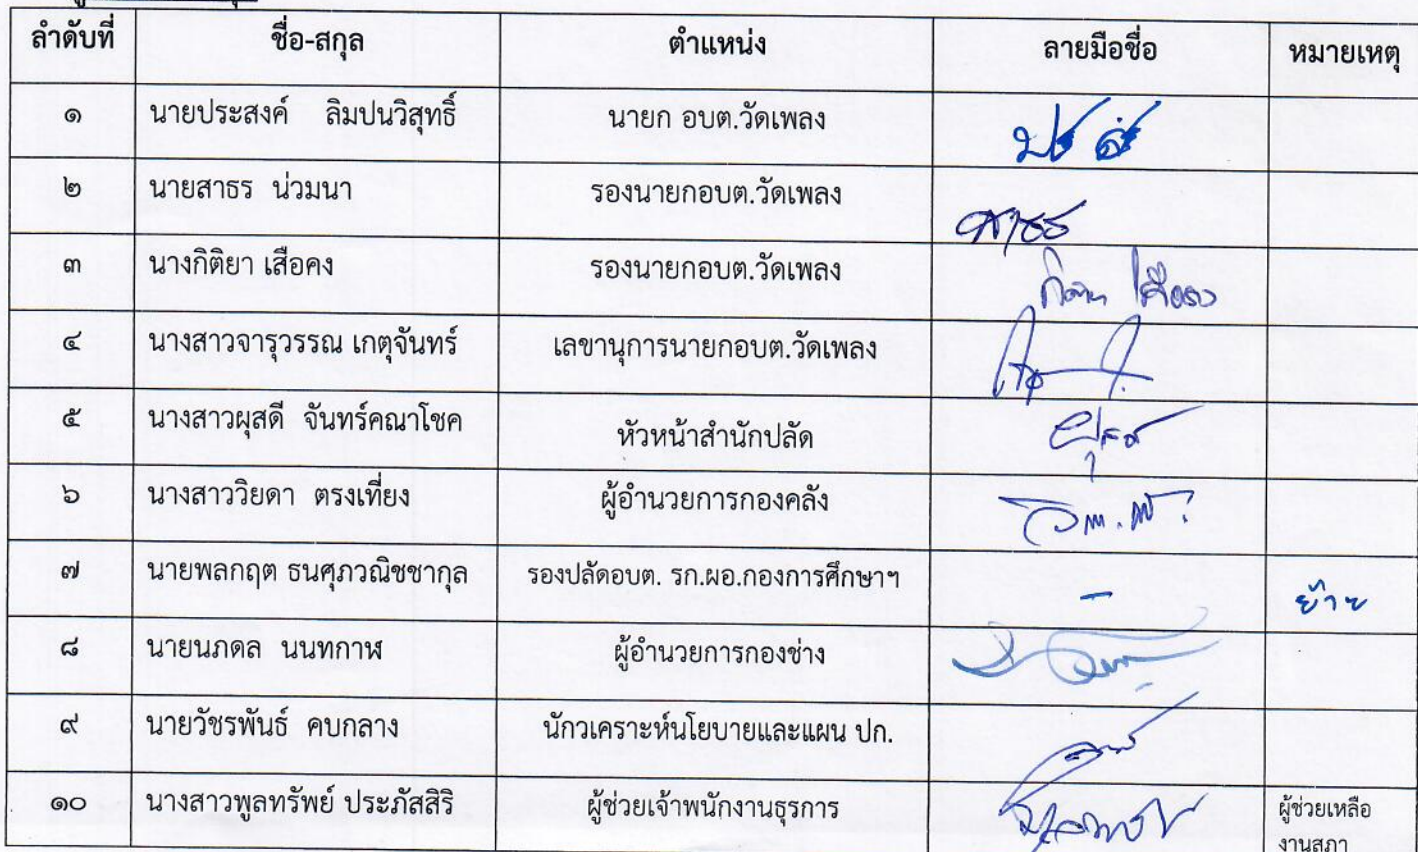 ลำดับที่ ชื่อ-สกุล ตำแหน่ง ลายมือชื่อ หมายเหตุ
๑ นายประสงค์ ลิมปนวิสุทธิ์ นายก อบต.วัดเพลง
๒ นายสาธร น่วมนา รองนายกอบต.วัดเพลง สาธร
๓ นางกิติยา เสือคง รองนายกอบต.วัดเพลง กิติยา เสือคง
๔ นางสาวจารุวรรณ เกตุจันทร์ เลขานุการนายกอบต.วัดเพลง
๕ นางสาวผุสดี จันทร์คณาโชค หัวหน้าสำนักปลัด ผุสดี
๖ นางสาววิยดา ตรงเที่ยง ผู้อำนวยการกองคลัง
๗ นายพลกฤต ธนศุภวณิชชากุล รองปลัดอบต. รก.ผอ.กองการศึกษาฯ - ย้าย
๘ นายนภดล นนทกาฬ ผู้อำนวยการกองช่าง
๙ นายวัชรพันธ์ คบกลาง นักวเคราะห์นโยบายและแผน ปก.
๑๐ นางสาวพูลทรัพย์ ประภัสสิริ ผู้ช่วยเจ้าพนักงานธุรการ ผู้ช่วยเหลือ
งานสภา